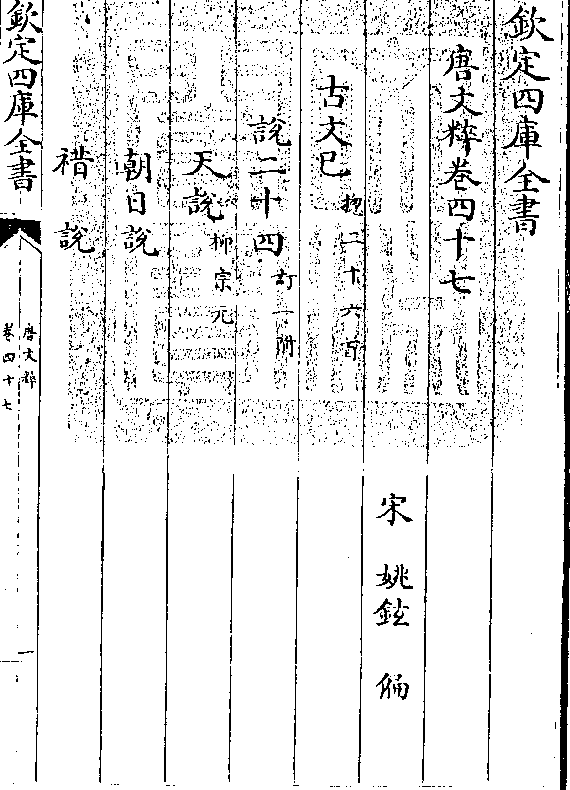 欽定四庫全書
唐文粹卷四十七
宋 姚鉉 編
古文巳 揔二十六首
說二十四 訂一附
天說 柳宗元
朝日說
䄍說
欽定四庫全書
唐文粹
卷四十七
一